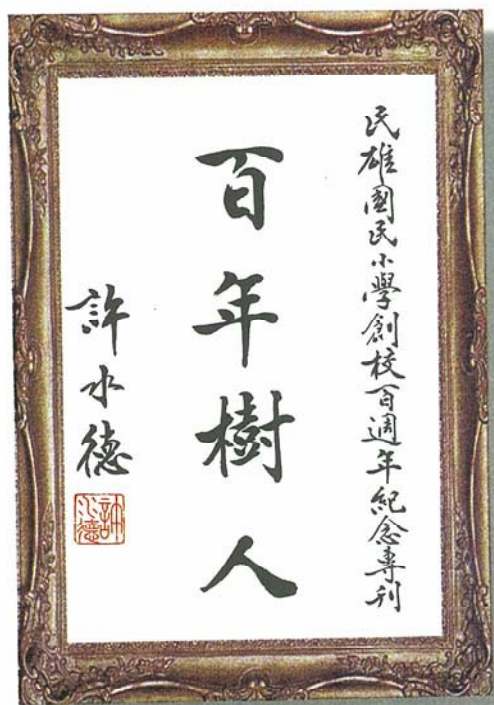 民雄國民小學創校百週年紀念專刊
百年樹人
許水德
許水德